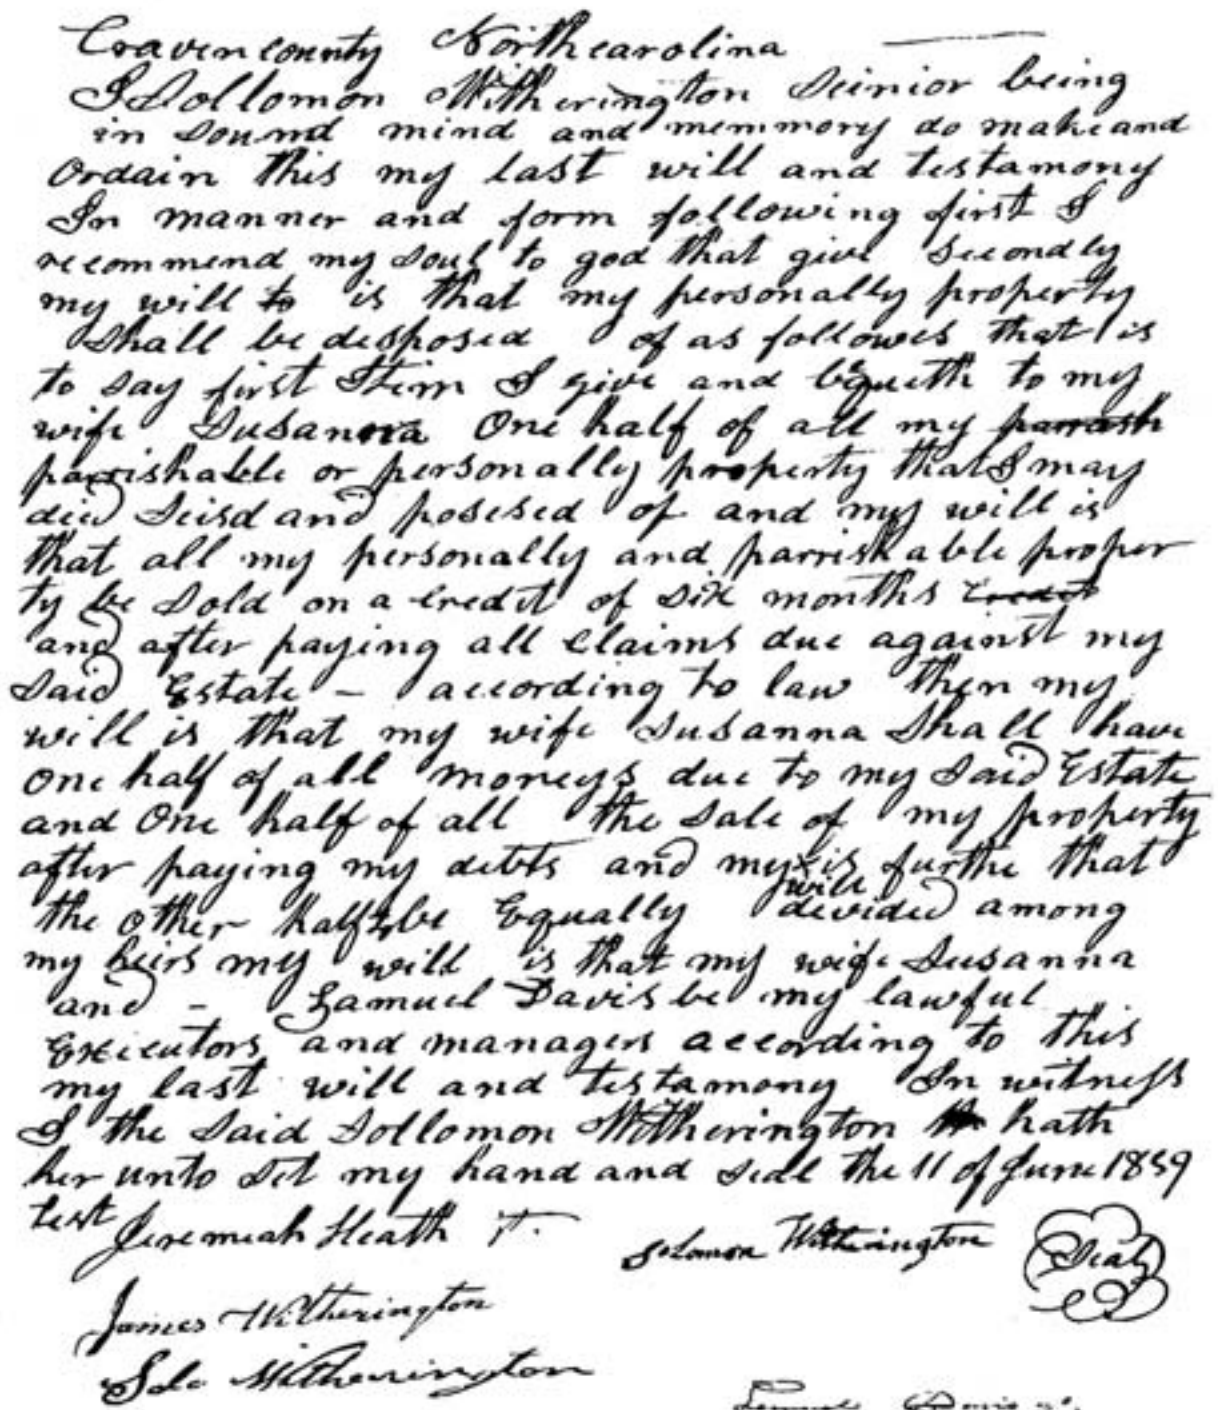 Craven county Northcarolina
I Sollomon Witherington Seinior being
in sound mind and memmory do make and
Ordain this my last will and testamony
In manner and form following first I
recommend my soul to god that give Secondly
my will to is that my personally property
Shall be desposed of as followes that is
to say first Item I give and bequeth to my
wife Susanna One half of all my parrash
parrishable or personally property that I may
died Seisd and posesed of and my will is
that all my personally and parrishable proper
ty be Sold on a Credit of six months Credit
and after paying all Claims due against my
Said Estate - according to law then my
will is that my wife Susanna Shall have
One half of all moneys due to my Said Estate
and One half of all the Sale of my property
after paying my debts and my x is furthe that
will
the other half to be Equally devided among
my heirs my will is that my wife Susanna
and - Samuel Davis be my lawful
Executors and managers according to this
my last will and testamony In witness
I the Said Sollomon Witherington hath
her unto Set my hand and seal the 11 of June 1859
test Jeremiah Heath
Solomon Witherington Seal
James Witherington
Solo Witherington